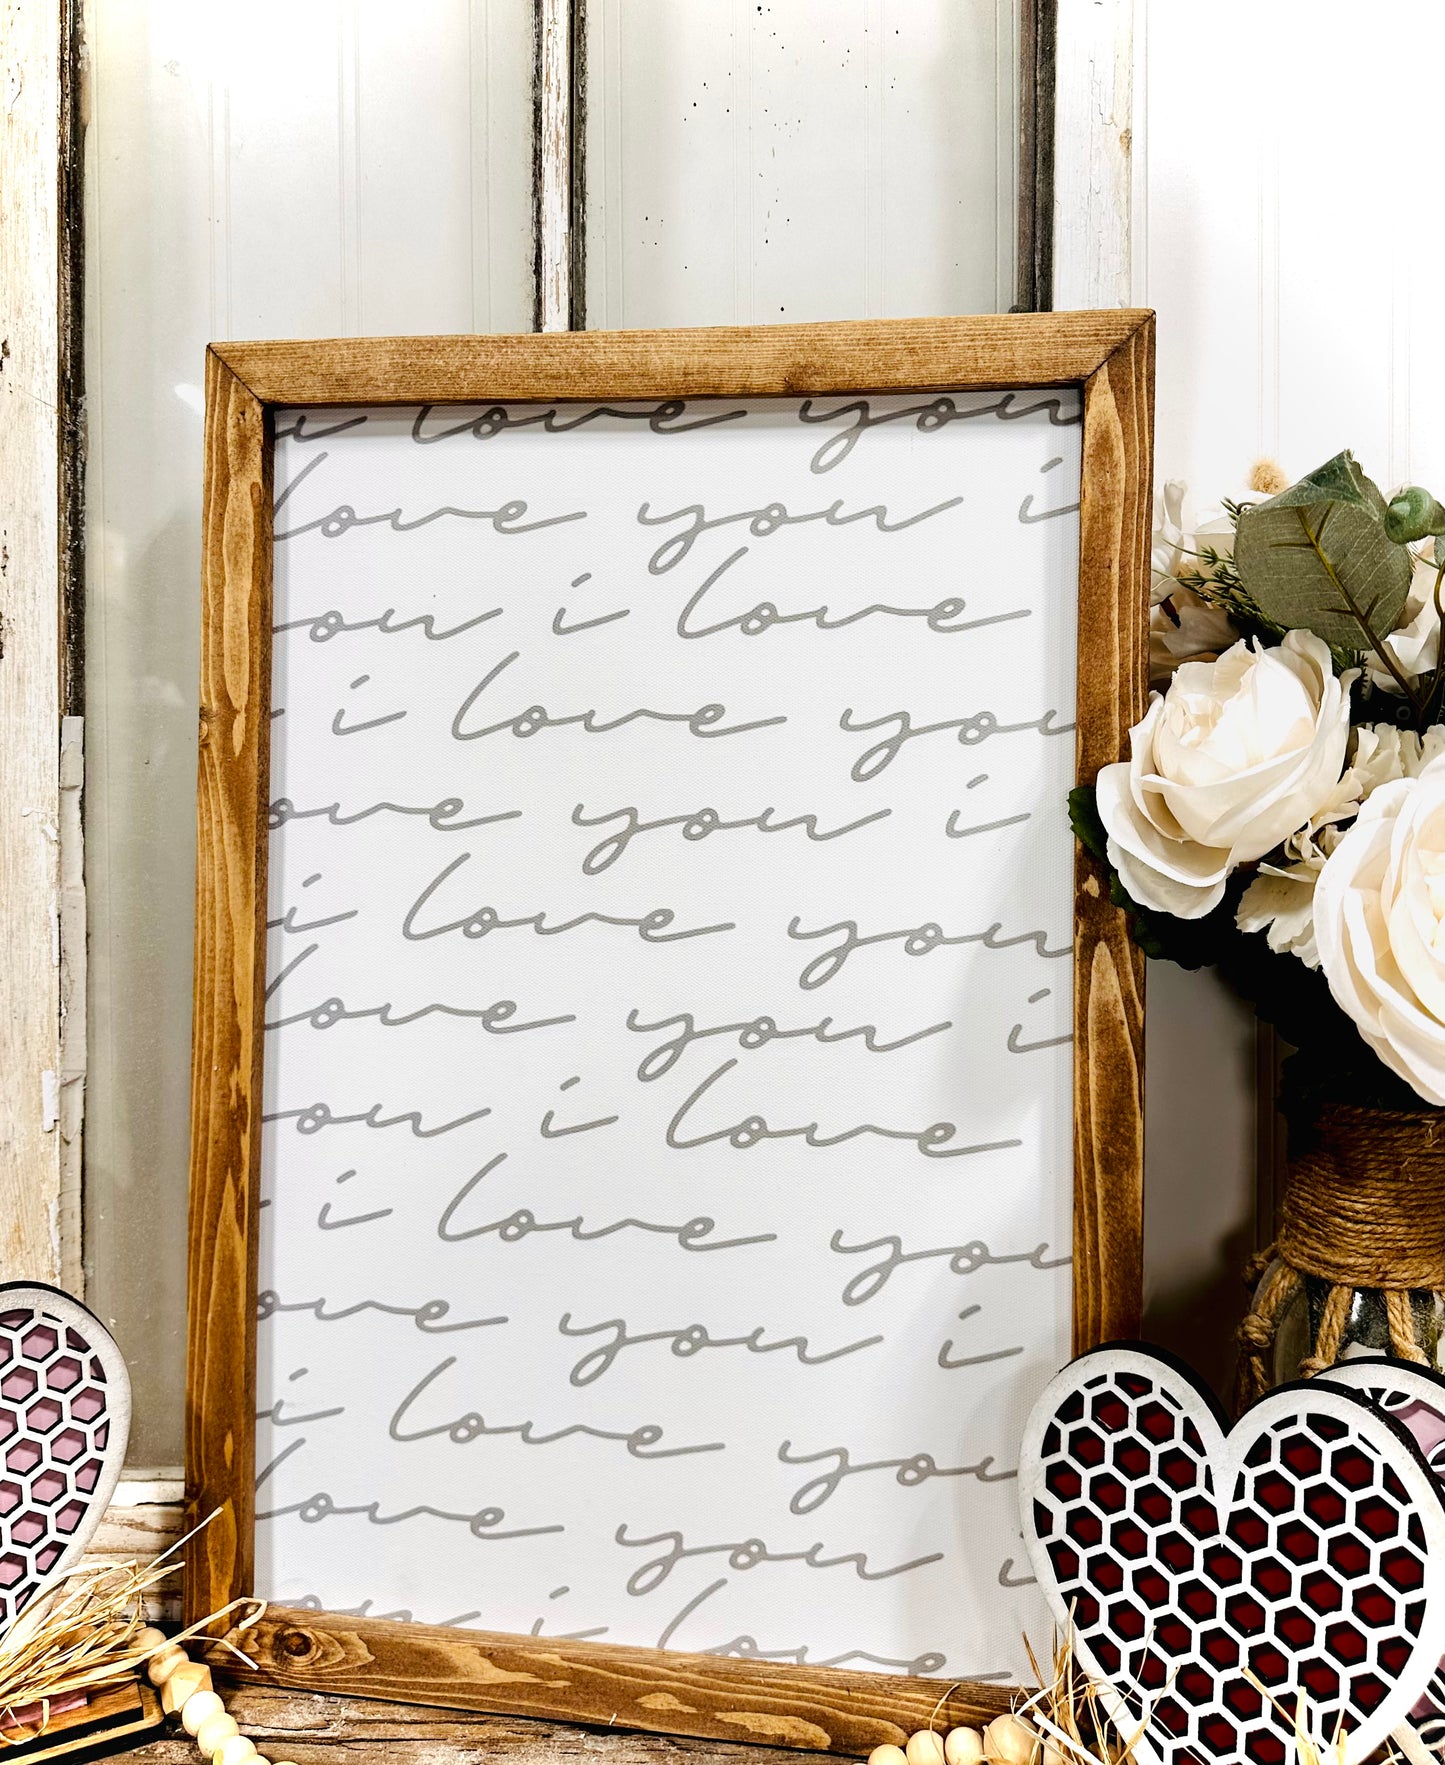 i love you
love you i
ou i love
i love you
ove you i
i love you
love you i
ou i love
i love you
ove you i
i love you
love you i
ou i love